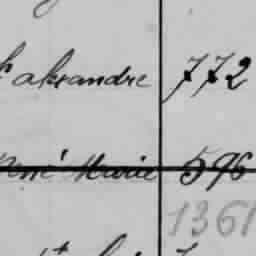 alexandre 772
René Marie 596
1361